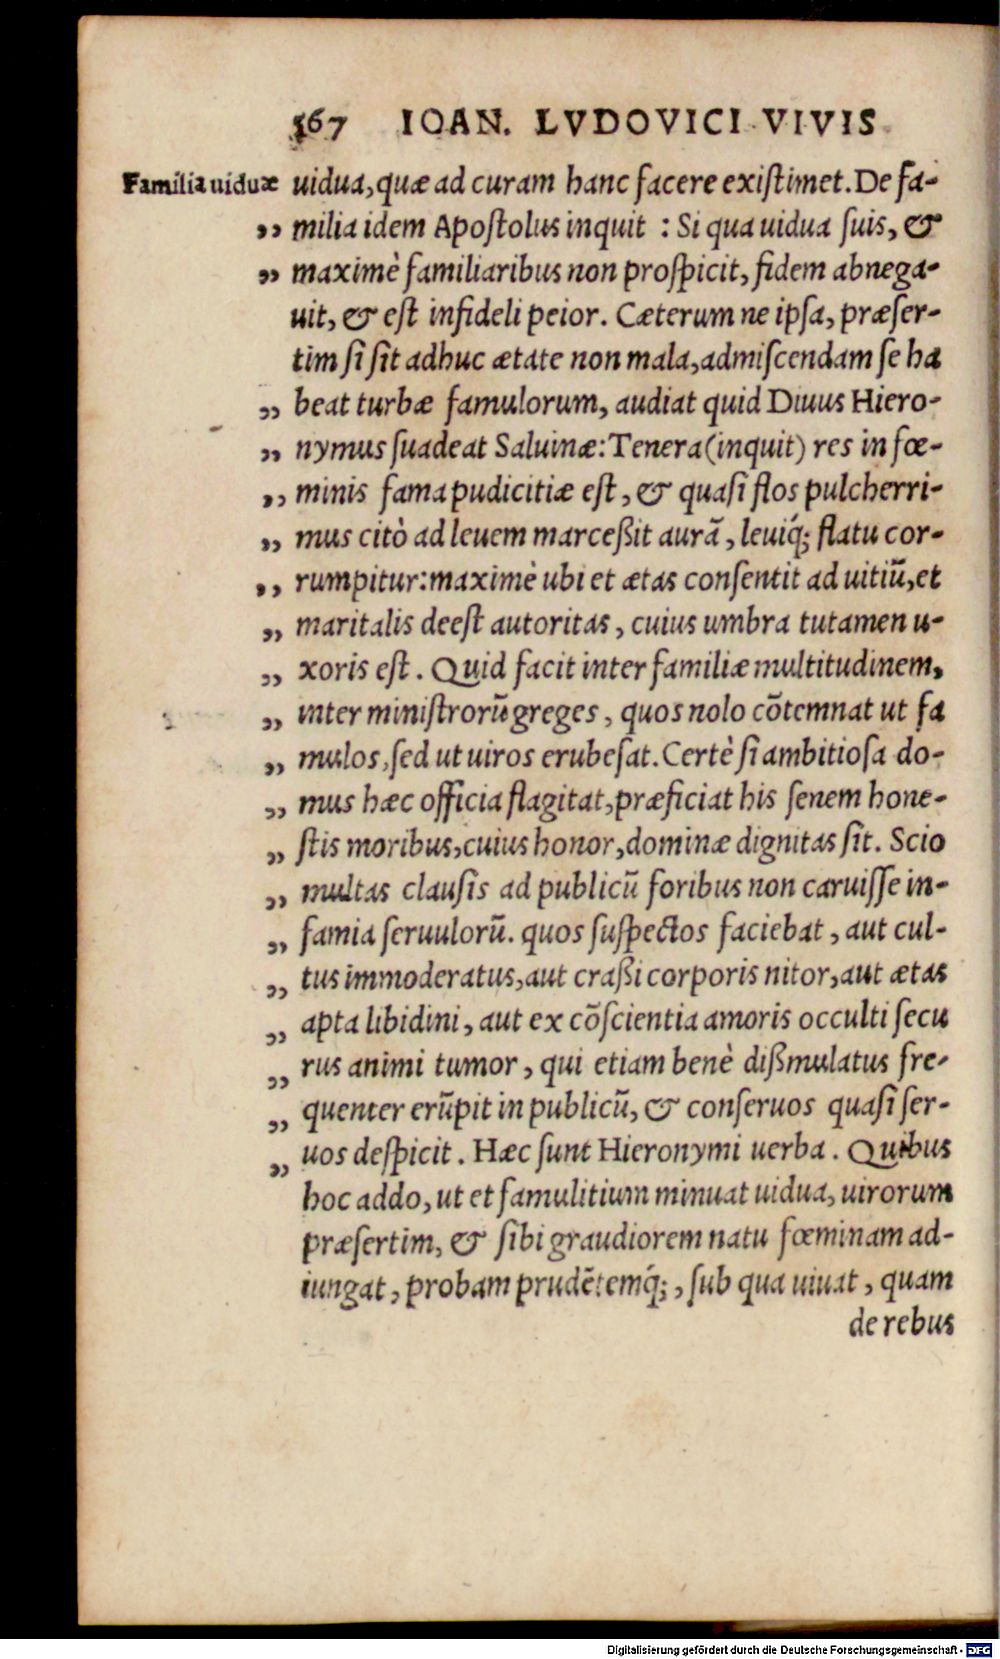 367 IOAN. LVDOVICI VIVIS
Familia uiduæ
uidua, quæ ad curam hanc facere existimet. De fa-
„ milia idem Apostolus inquit : Si qua uidua suis, &
„ maximè familiaribus non prospicit, fidem abnega-
uit, & est infideli peior. Cæterum ne ipsa, præser-
tim si sit adhuc ætate non mala, admiscendam se ha
„ beat turbæ famulorum, audiat quid Diuus Hiero-
„ nymus suadeat Saluinæ: Tenera (inquit) res in fœ-
„ minis fama pudicitiæ est, & quasi flos pulcherri-
„ mus citò ad leuem marceßit aurã, leuiq́; flatu cor-
„ rumpitur: maximè ubi et ætas consentit ad uitiũ, et
„ maritalis deest autoritas, cuius umbra tutamen u-
„ xoris est. Quid facit inter familiæ multitudinem,
„ inter ministrorũ greges, quos nolo cõtemnat ut fa
„ mulos, sed ut uiros erubesat. Certè si ambitiosa do-
„ mus hæc officia flagitat, præficiat his senem hone-
„ stis moribus, cuius honor, dominæ dignitas sit. Scio
„ multas clausis ad publicũ foribus non caruisse in-
„ famia seruulorũ. quos suspectos faciebat, aut cul-
„ tus immoderatus, aut craßi corporis nitor, aut ætas
„ apta libidini, aut ex cõscientia amoris occulti secu
„ rus animi tumor, qui etiam benè dißmulatus fre-
„ quenter erũpit in publicũ, & conseruos quasi ser-
„ uos despicit. Hæc sunt Hieronymi uerba. Quibus
hoc addo, ut et famulitium minuat uidua, uirorum
præsertim, & sibi graudiorem natu fœminam ad-
iungat, probam prudẽtemq́;, sub qua uiuat, quam
de rebus
Digitalisierung gefördert durch die Deutsche Forschungsgemeinschaft - DFG